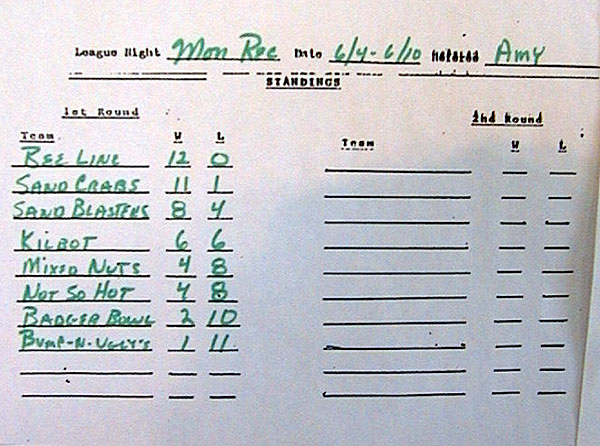 League Night Mon Rec Date 6/4-6/10 Amy
STANDINGS
1st Round
Team W L
LINE 12 0
SAND CRABS 11 1
SAND BLASTERS 8 4
KILBOT 6 6
MIXED NUTS 4 8
NOT SO HOT 4 8
BADGER BOWL 2 10
BUMP-N-UGLY'S 1 11
2nd Round
Team W L